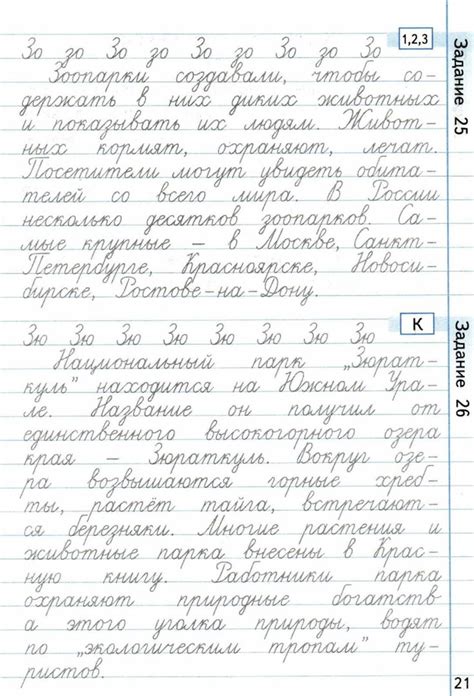 1,2,3
Задание 25
Зо зо Зо зо Зо зо Зо зо Зо
Зоопарки создавали, чтобы со-
держать в них диких животных
и показывать их людям. Живот-
ных кормят, охраняют, лечат.
Посетители могут увидеть обита-
телей со всего мира. В России
несколько десятков зоопарков. Са-
мые крупные – в Москве, Санкт-
Петербурге, Красноярске, Новоси-
бирске, Ростове-на-Дону.
К
Задание 26
Зю Зю Зю Зю Зю Зю Зю Зю Зю
Национальный парк „Зюрат-
куль” находится на Южном Ура-
ле. Название он получил от
единственного высокогорного озера
края – Зюраткуль. Вокруг озе-
ра возвышаются горные хреб-
ты, растёт тайга, встречают-
ся березняки. Многие растения и
животные парка внесены в Крас-
ную книгу. Работники парка
охраняют природные богатств
а этого уголка природы, водят
по „экологическим тропам” ту-
ристов.
21